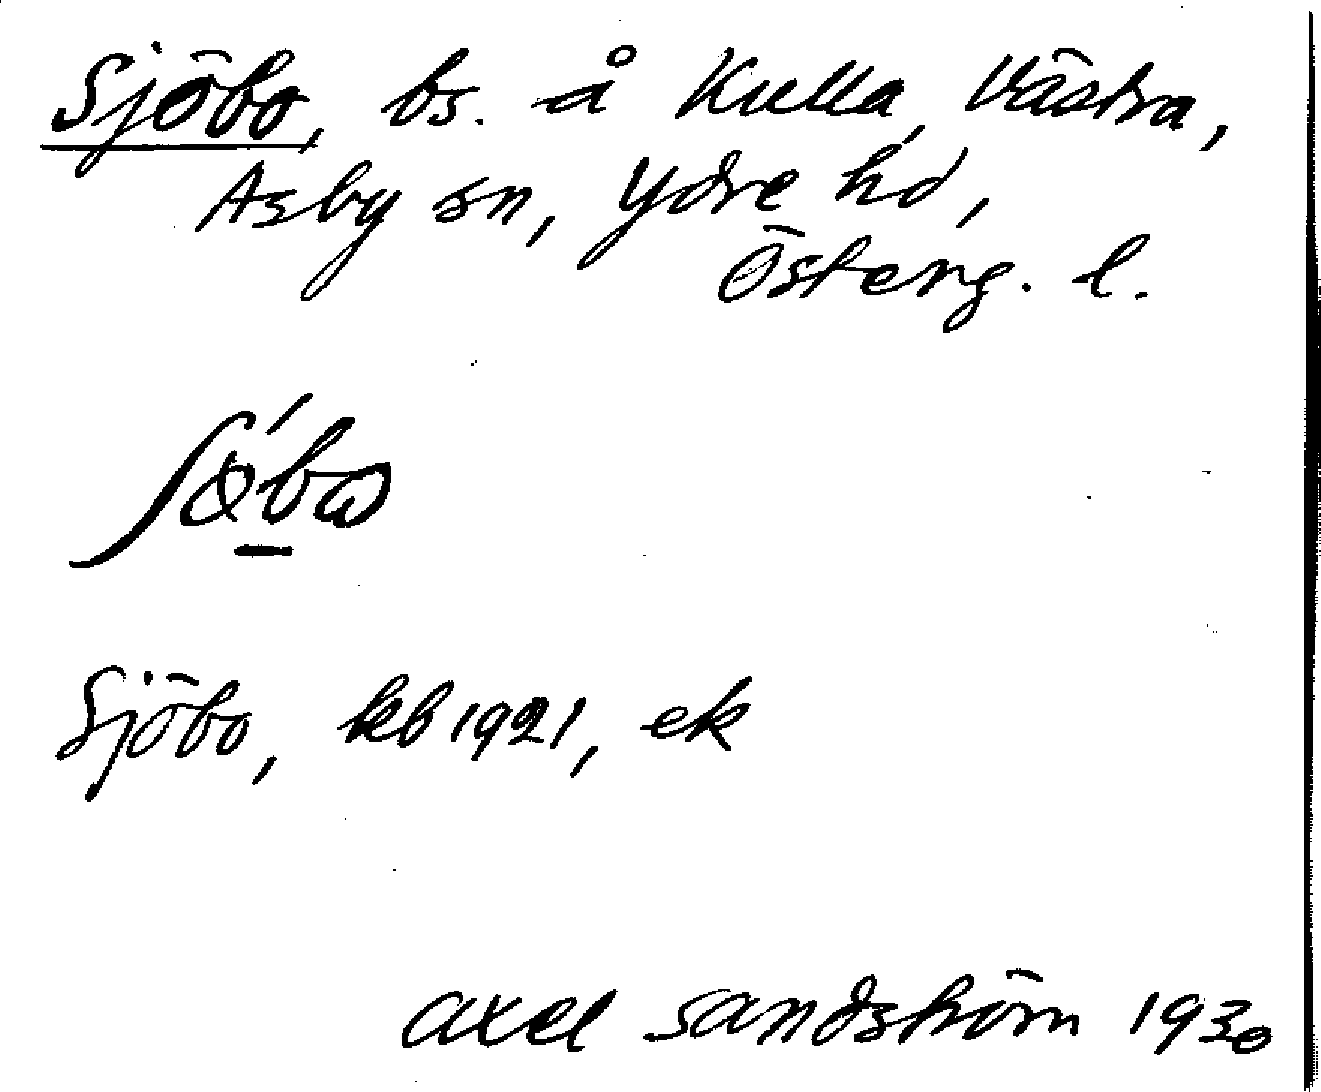 Sjöbo, bs. å Kulla, Västra,
Asby sn, Ydre hd,
Österg. l.
Sjöbo, kb 1921, ek
Axel Sandström 1930